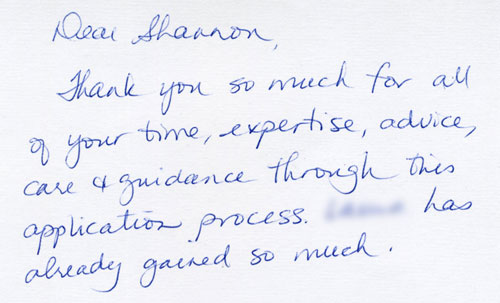 Dear Shannon,
Thank you so much for all
of your time, expertise, advice,
care & guidance through this
application process. has
already gained so much.